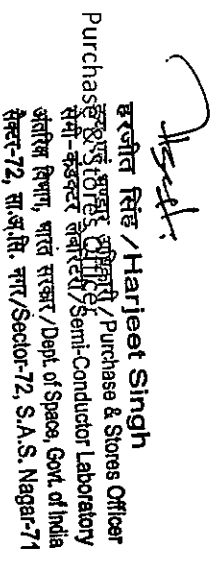 हरजीत सिंह / Harjeet Singh
/ Purchase & Stores Officer
Purchase & Stores Officer
सेमी-कंडक्टर लेबोरेटरी / Semi-Conductor Laboratory
अंतरिक्ष विभाग, भारत सरकार / Dept. of Space, Govt. of India
सैक्टर-72, सा.अ.सि. नगर / Sector-72, S.A.S. Nagar-71